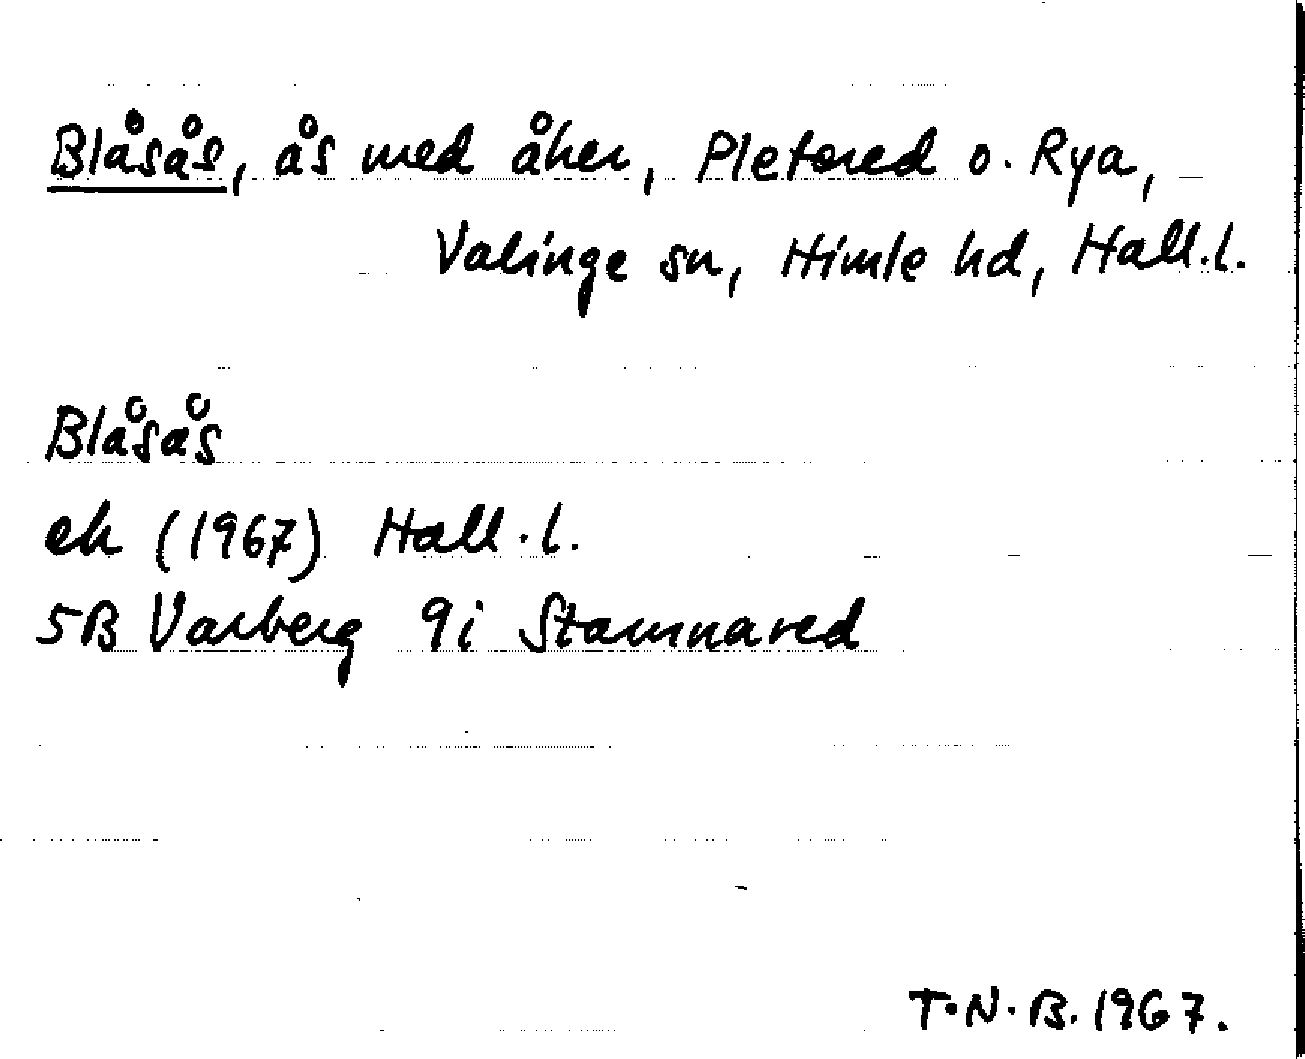 Blåsås, ås med åker, Pletored o. Rya,
Valinge sn, Himle hd, Hall.l.
Blåsås
ek (1967) Hall.l.
5B Varberg 9i Stamnared
T.N.B. 1967.